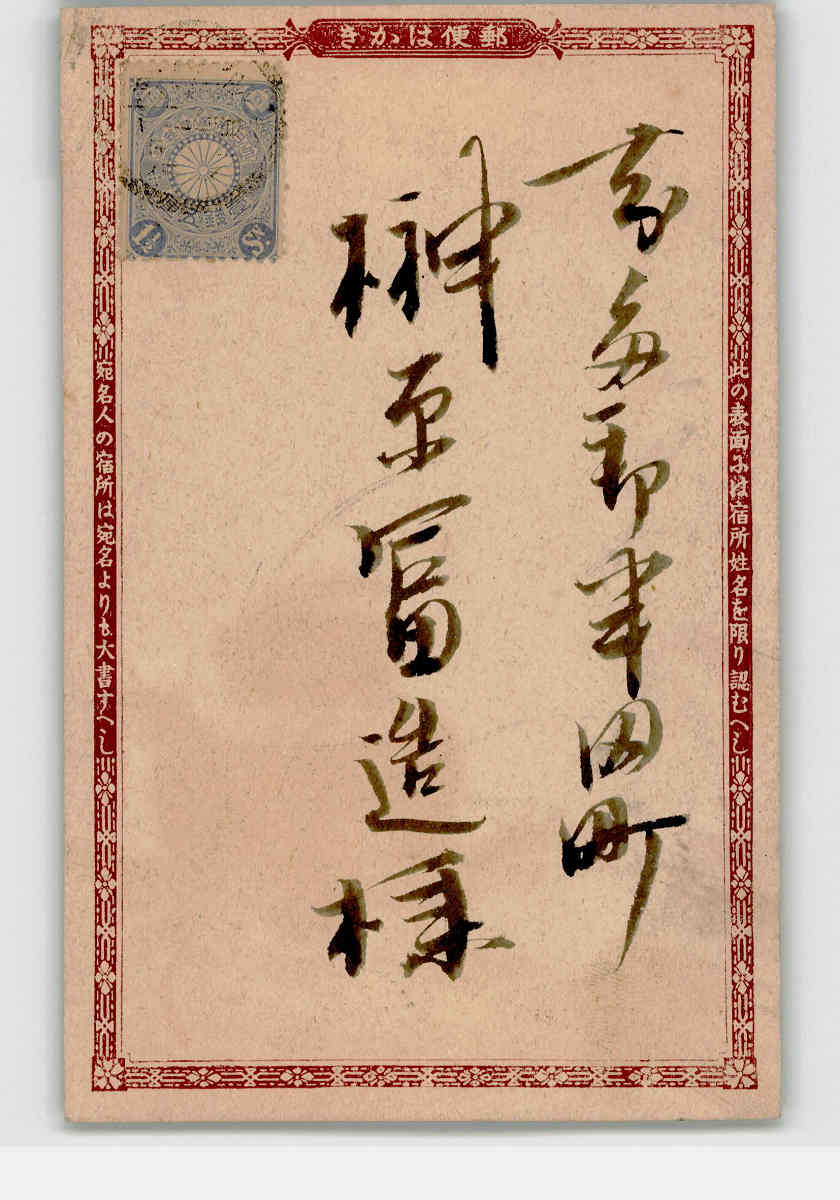 郵便はかき
此の表面には宿所姓名を限り認むへし
知多郡半田町
榊原冨造様
宛名人の宿所は宛名よりも大書すへし
1½ Sn.